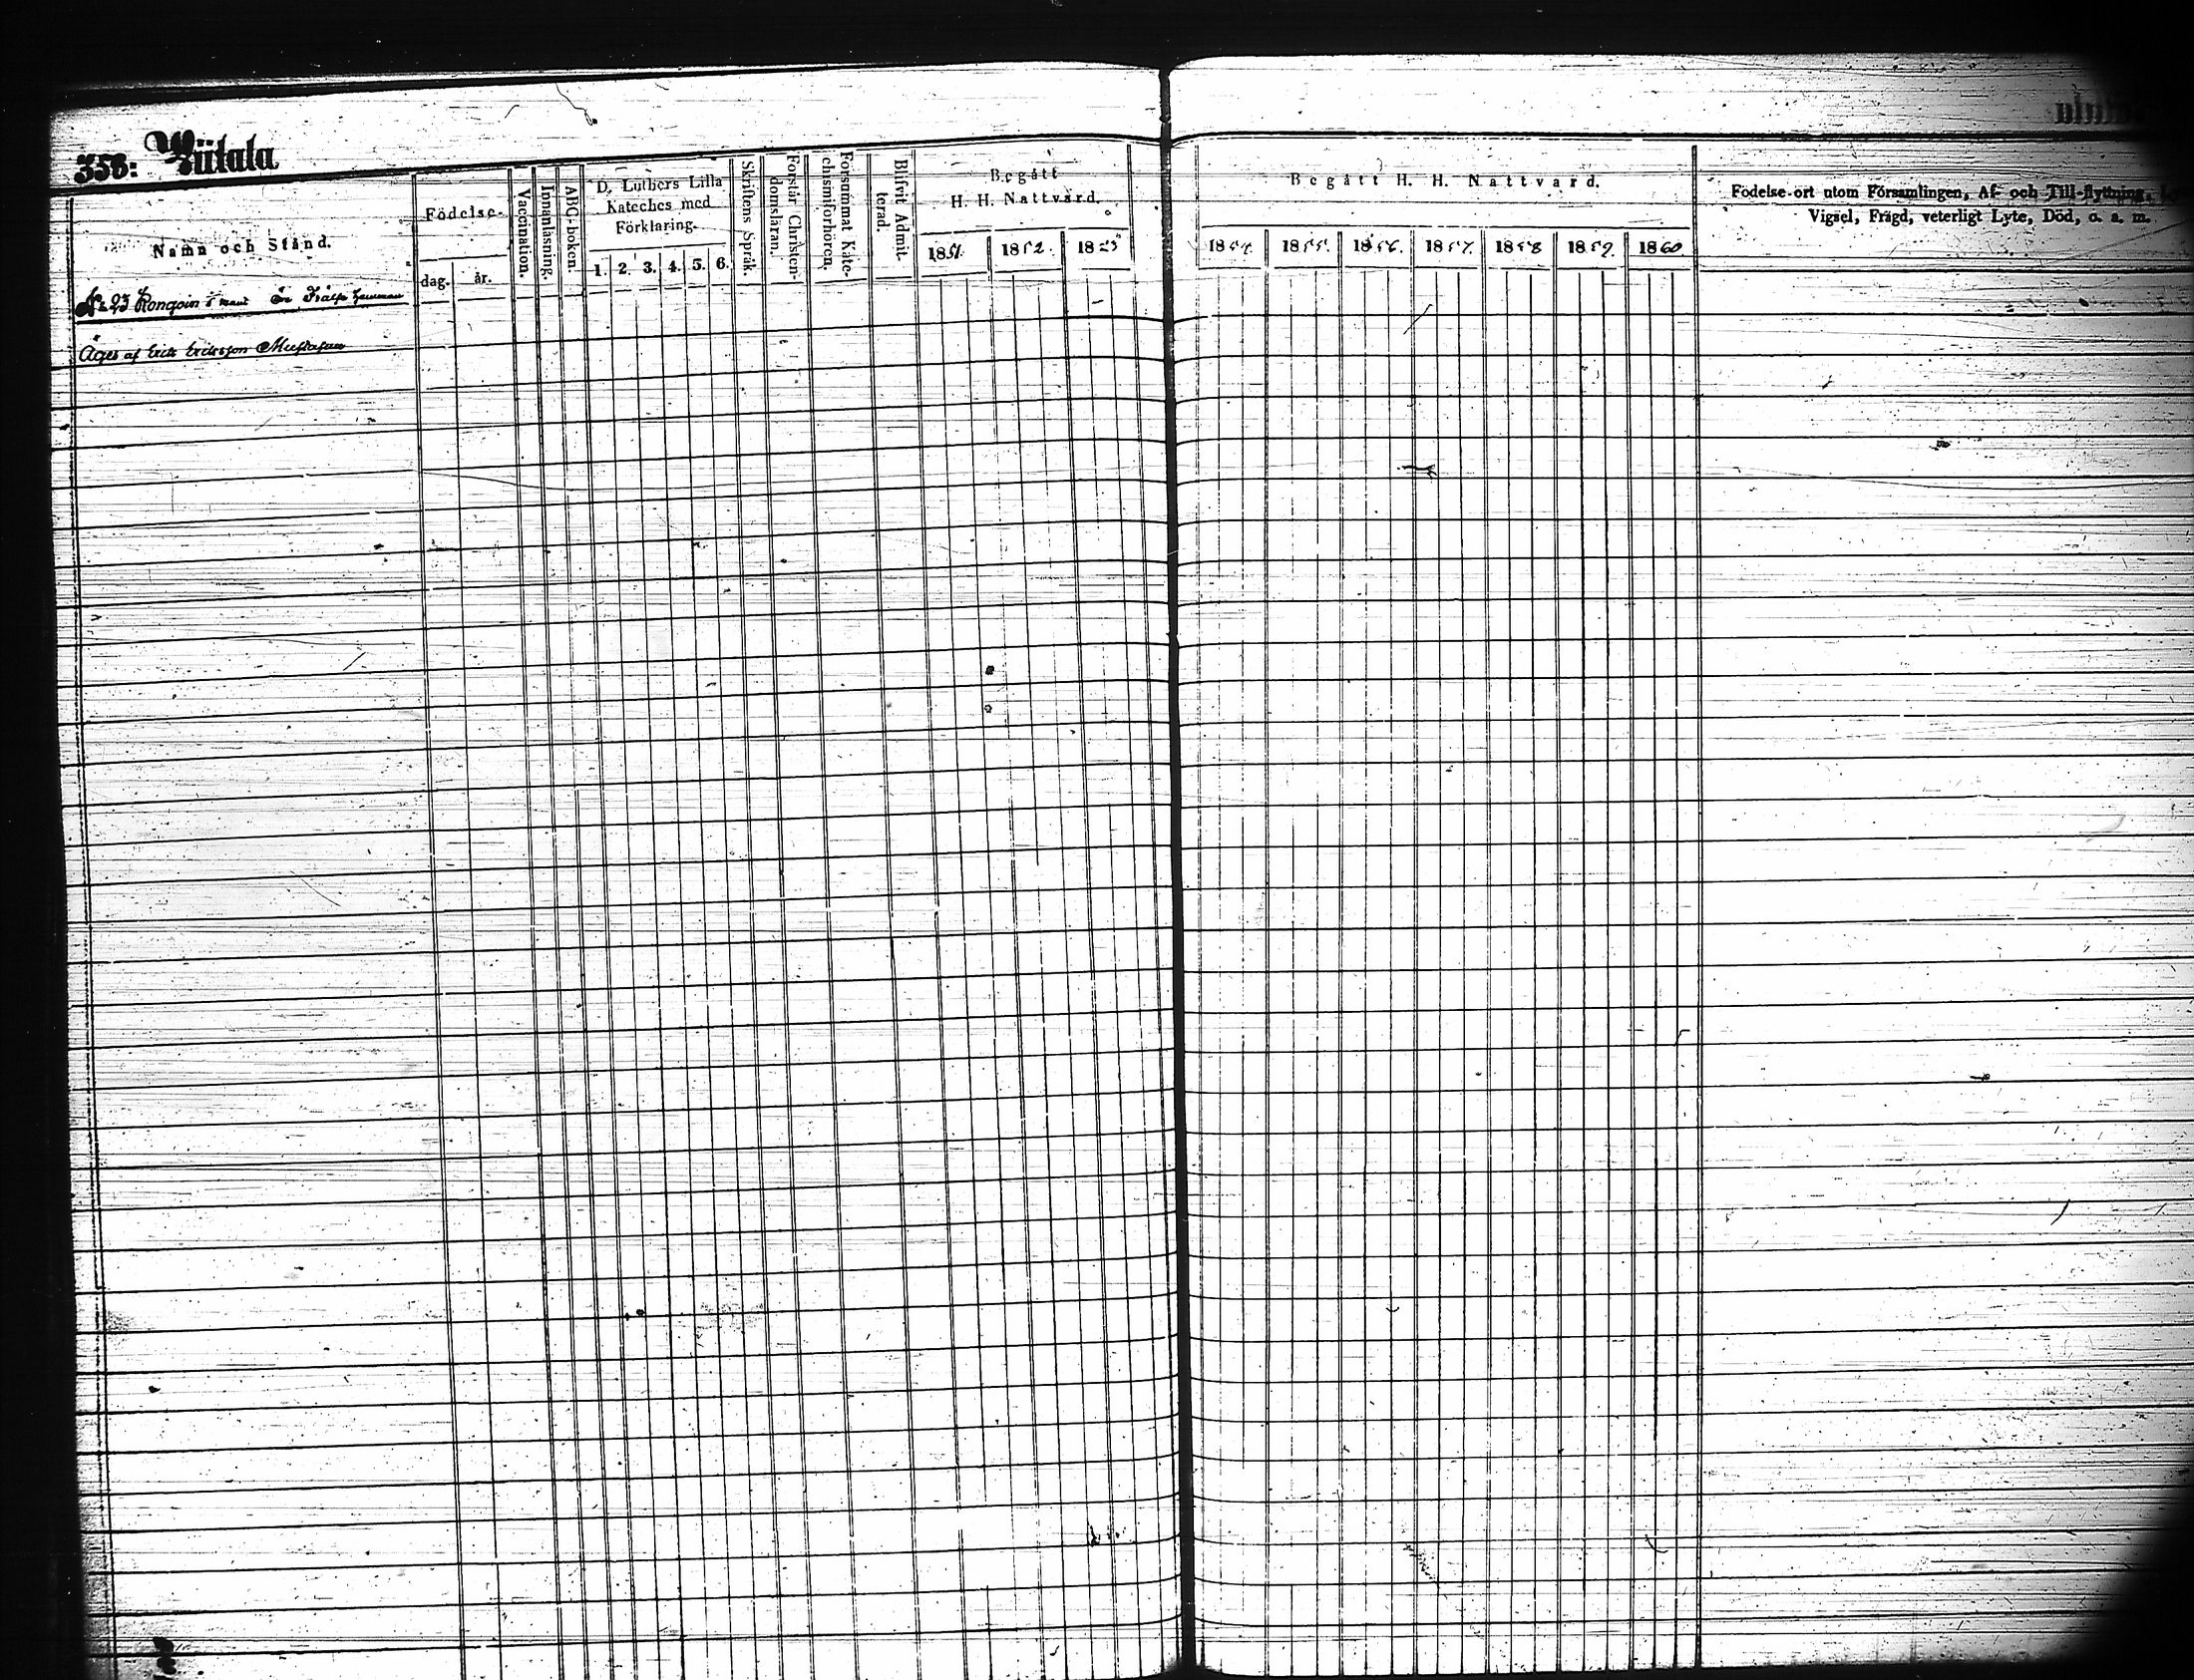 358: Wiitala
Namn och Stånd.
Födelse-
dag. år.
Vaccination.
Innanläsning.
ABC-boken.
D. Luthers Lilla
Kateches med
Förklaring.
1. 2. 3. 4. 5. 6.
Skriftens Språk.
Förstår Christen-
domsläran.
Försummat Kate-
chismiförhören.
Blifvit Admit-
terad.
Begått
H. H. Nattvard.
1851. 1852. 1853
Begått H. H. Nattvard.
1854. 1855. 1856. 1857. 1858 1859. 1860.
Födelse-ort utom Församlingen, Af- och Till-flyttning,
Vigsel, Frägd, veterligt Lyte, Död, o. a. m.
No 23
Äges af Erik Eriksson